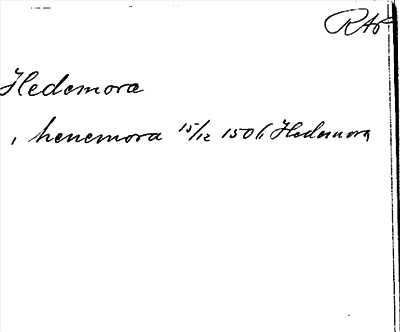 RAp
Hedemora
, henemora 15/12 1506 Hedemora